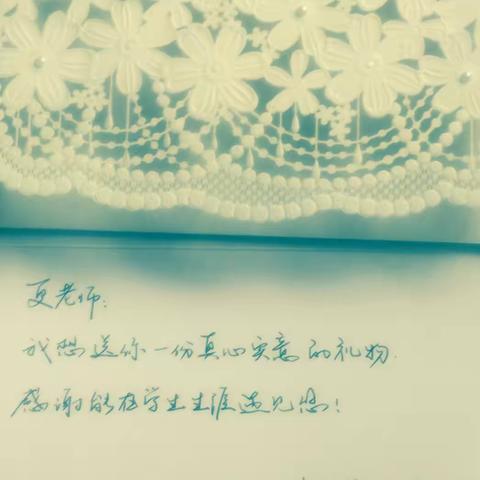 夏老师：
我想送你一份真心实意的礼物.
感谢能在学生生涯遇见您！